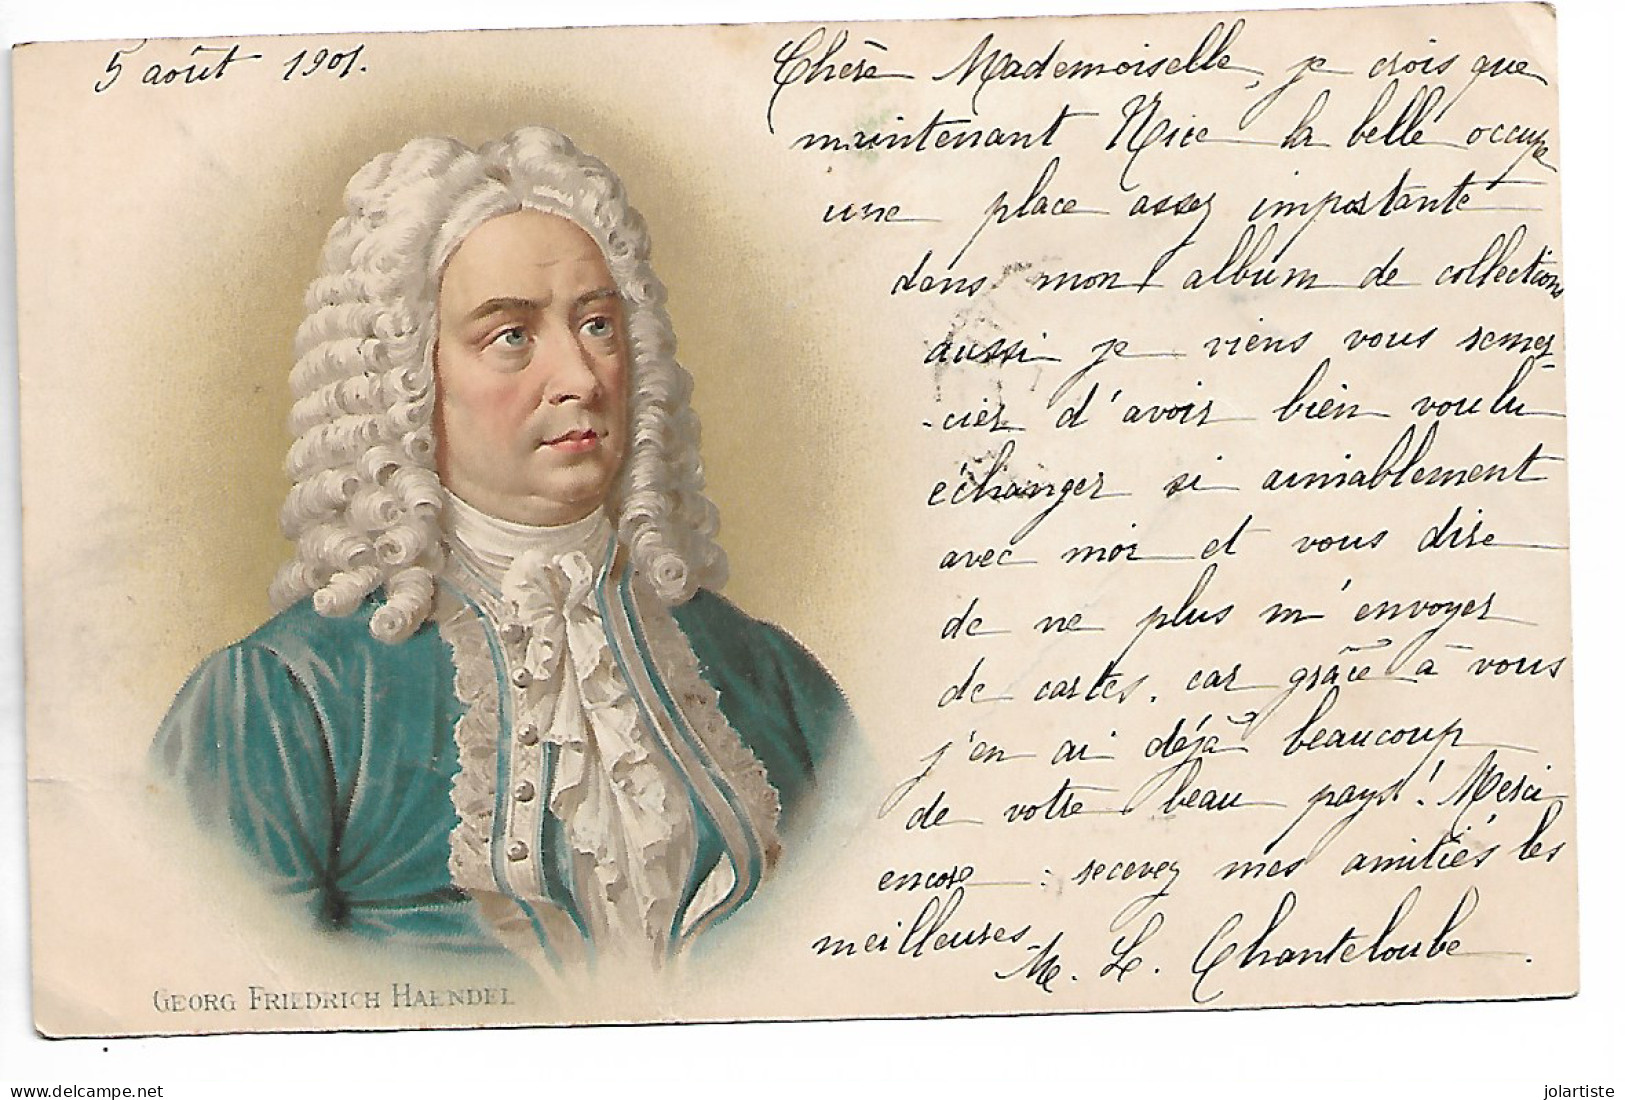 5 août 1901.
Chère Mademoiselle, je crois que
maintenant Nice la belle occupe
une place assez importante
dans mon album de collections
aussi je viens vous remer-
-cier d'avoir bien voulu
échanger si aimablement
avec moi et vous dire
de ne plus m'envoyer
de cartes, car grâce à vous
j'en ai déjà beaucoup
de votre beau pays! Merci
encore : recevez mes amitiés les
meilleures
M. L. Chanteloube.
GEORG FRIEDRICH HAENDEL
delcampe.net
jolartiste